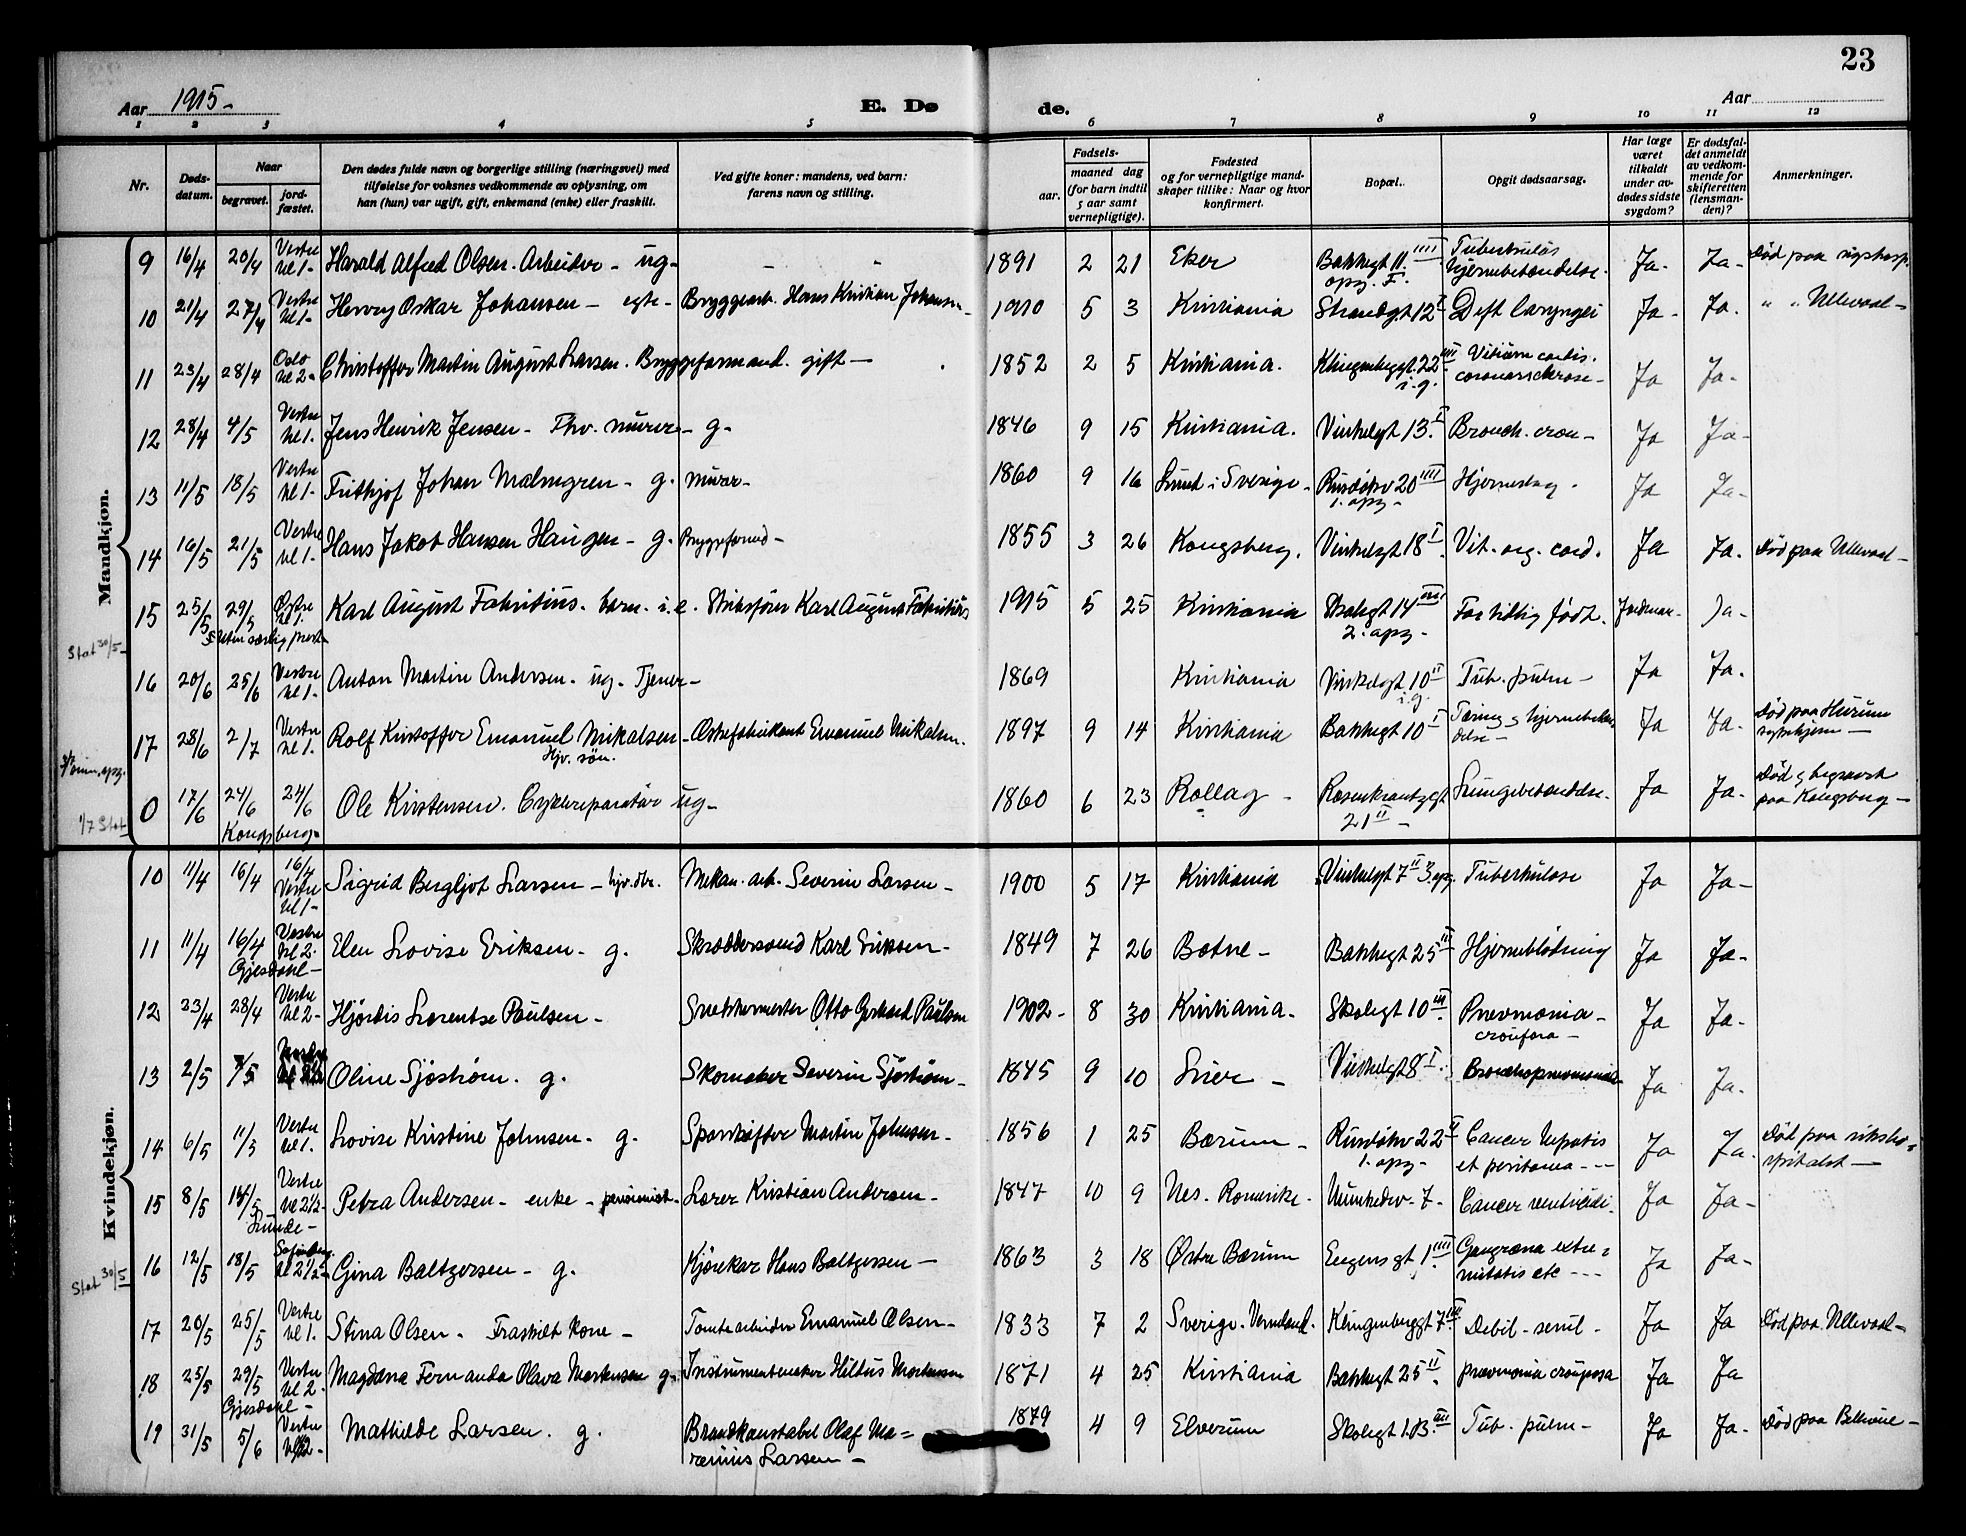 23
Aar 1915 - E. Dø de. Aar
1 2 3 4 5 6 7 8 9 10 11 12
Nr. Døds-datum. Naar begravet. jord-fæstet. Den dødes fulde navn og borgerlige stilling (næringsvei) med tilføielse for voksnes vedkommende av oplysning, om han (hun) var ugift, gift, enkemand (enke) eller fraskilt. Ved gifte koner: mandens, ved barn: farens navn og stilling. Fødsels- aar. maaned dag (for barn indtil 5 aar samt vernepligtige). Fødested og for vernepligtige mand-skaper tillike: Naar og hvor konfirmert. Bopæl. Opgit dødsaarsag. Har læge været tilkaldt under av-dødes sidste sygdom? Er dødsfal-det anmeldt av vedkom-mende for skifteretten (lensman-den)? Anmerkninger.
Mandkjøn.
9 16/4 20/4 Vestre kl 1 - Harald Alfred Olsen. Arbeider - ug - - - 1891 2 21 Eker Bakkegt 11 IIII opg. I. Tuberkuløs hjernebetændelse. Ja - Ja - Død paa rigshosp.
10 21/4 27/4 Vestre kl 1 - Henry Oskar Johansen - egte - Bryggearb. Hans Kristian Johansen - 1910 5 3 Kristiania Strandgt 12 I Dift laryngei Ja - Ja. " " Ullevaal -
11 23/4 28/4 Oslo kl 2 - Christoffer Martin August Larsen. Bryggeformand. gift - 1852 2 5 Kristiania. Klingenberggt. 22 IIII i.g. Vitium cordis. coronarsclerose - Ja Ja -
12 28/4 4/5 Vestre kl 1. Jens Henrik Jensen - Fhv. murer - g - 1846 9 15 Kristiania. Vinkelgt 13. I Bronch. cron - Ja Ja -
13 11/5 18/5 Vestre kl 1 - Frithjof Johan Malmgren - g. murer - 1860 9 16 Lund i Sverige - Ruseløkv 20 IIII 1. opg - Hjerneslag - Ja Ja -
14 16/5 21/5 Vestre kl 1. Hans Jakob Hansen Haugen - g. Bryggeformd - 1855 3 26 Kongsberg. Vinkelgt 18 I. Vit. org. cord. Ja Ja. Død paa Ullevaal -
15 25/5 29/5 Østre kl 1. uten særlig prest Karl August Fabritius. barn. i. e. Karl August Fabritius 1915 5 25 Kristiania Skolegt 14 IIII 2. opg - For tidlig født. Jordmor. Ja -
Stat 30/5 -
16 20/6 25/6 Vestre kl 1 - Anton Martin Andersen. ug. Tjener - 1869 Kristiania Vinkelgt 10 II i.g. Tub. pulm - Ja Ja.
17 28/6 2/7 Vestre kl 1. Rolf Kristoffer Emanuel Mikalsen - Hjv. søn. Emanuel Mikalsen. 1897 9 14 Kristiania Bakkegt 10 I Tæring og hjernebetændelse - Ja Ja - Død paa Hurum sykehjem -
0 17/6 24/6 24/6 Kongsberg - Ole Kirstensen. Cykkelreparatør ug - 1860 6 23 Rollag - Rosenkrantzgt 21 II - Lungebetændelse. Ja Ja - Død og begravet paa Kongsberg -
1/7 Stat
Kvindekjøn.
10 11/4 16/4 16/4 Vestre kl 1 - Sigrid Bergljot Larsen - hjv. dtr. Mekan. arb. Severin Larsen - 1900 5 17 Kristiania Vinkelgt 7 II 3. opg. Tuberkulose Ja Ja -
11 11/4 16/4 Vestre kl 2. Gjesdahl - Elen Lovise Eriksen - g. Skræddersvend Karl Eriksen - 1849 7 26 Botne - Bakkegt 25 III Hjerneblødning Ja Ja -
12 23/4 28/4 Vestre kl 2 - Hjørdis Lorentse Paulsen - Snekkermester Otto Gerhard Paulsen 1902 - 8 30 Kristiania - Skolegt 10 III. Pnevmonia - crouposa - Ja Ja -
13 2/5 7/5 Oline Sjøstrøm. g. Skomaker Severin Sjøstrøm - 1845 9 10 Lier - Vinkelgt 8 I. Bronchopneumonia Ja Ja.
14 6/5 11/5 Vestre kl 1. Lovise Kristine Johnsen - g. Martin Johnsen - 1856 1 25 Bærum - Ruseløkv 22 II 1. opg - Cancer hepatis et peritonea - - - Ja Ja. Død paa riksho-spitalet -
15 8/5 14/5 Vestre kl 2 1/2 - Lunde - Petra Andersen - enke - pensionist - Lærer Kristian Andersen - 1847 10 9 Nes. Romerike. Munkedv. 7 - Cancer ventriculi. Ja Ja -
Stat 30/5
16 12/5 18/5 kl 2 1/2 - Gina Baltzersen - g. Kjørekar Hans Baltzersen - 1863 3 18 Østre Bærum Eugens gt 1. IIII Gangræna extre-mitatis etc - - - Ja Ja -
17 20/5 25/5 Vestre kl 1. Stina Olsen - Fraskilt kone - Tomtearbeider Emanuel Olsen - 1833 7 2 Sverige. Vermland. Klingenberggt 7 III. Debil. senil - Ja Ja Død paa Ullevaal -
18 25/5 29/5 Vestre kl 2 Gjesdahl - Magdana Fernanda Olava Mortensen g. Instrumentmaker Hildus Mortensen 1871 4 25 Kristiania Bakkegt 25 II. pnevmonia crouposa Ja Ja
19 31/5 5/6 Vestre Mathilde Larsen. g. Brandkonstabel Olaf Ma=renius Larsen - 1879 4 9 Elverum Skolegt 13. III Tub. pulm - Ja Ja - Død paa Bellevue -